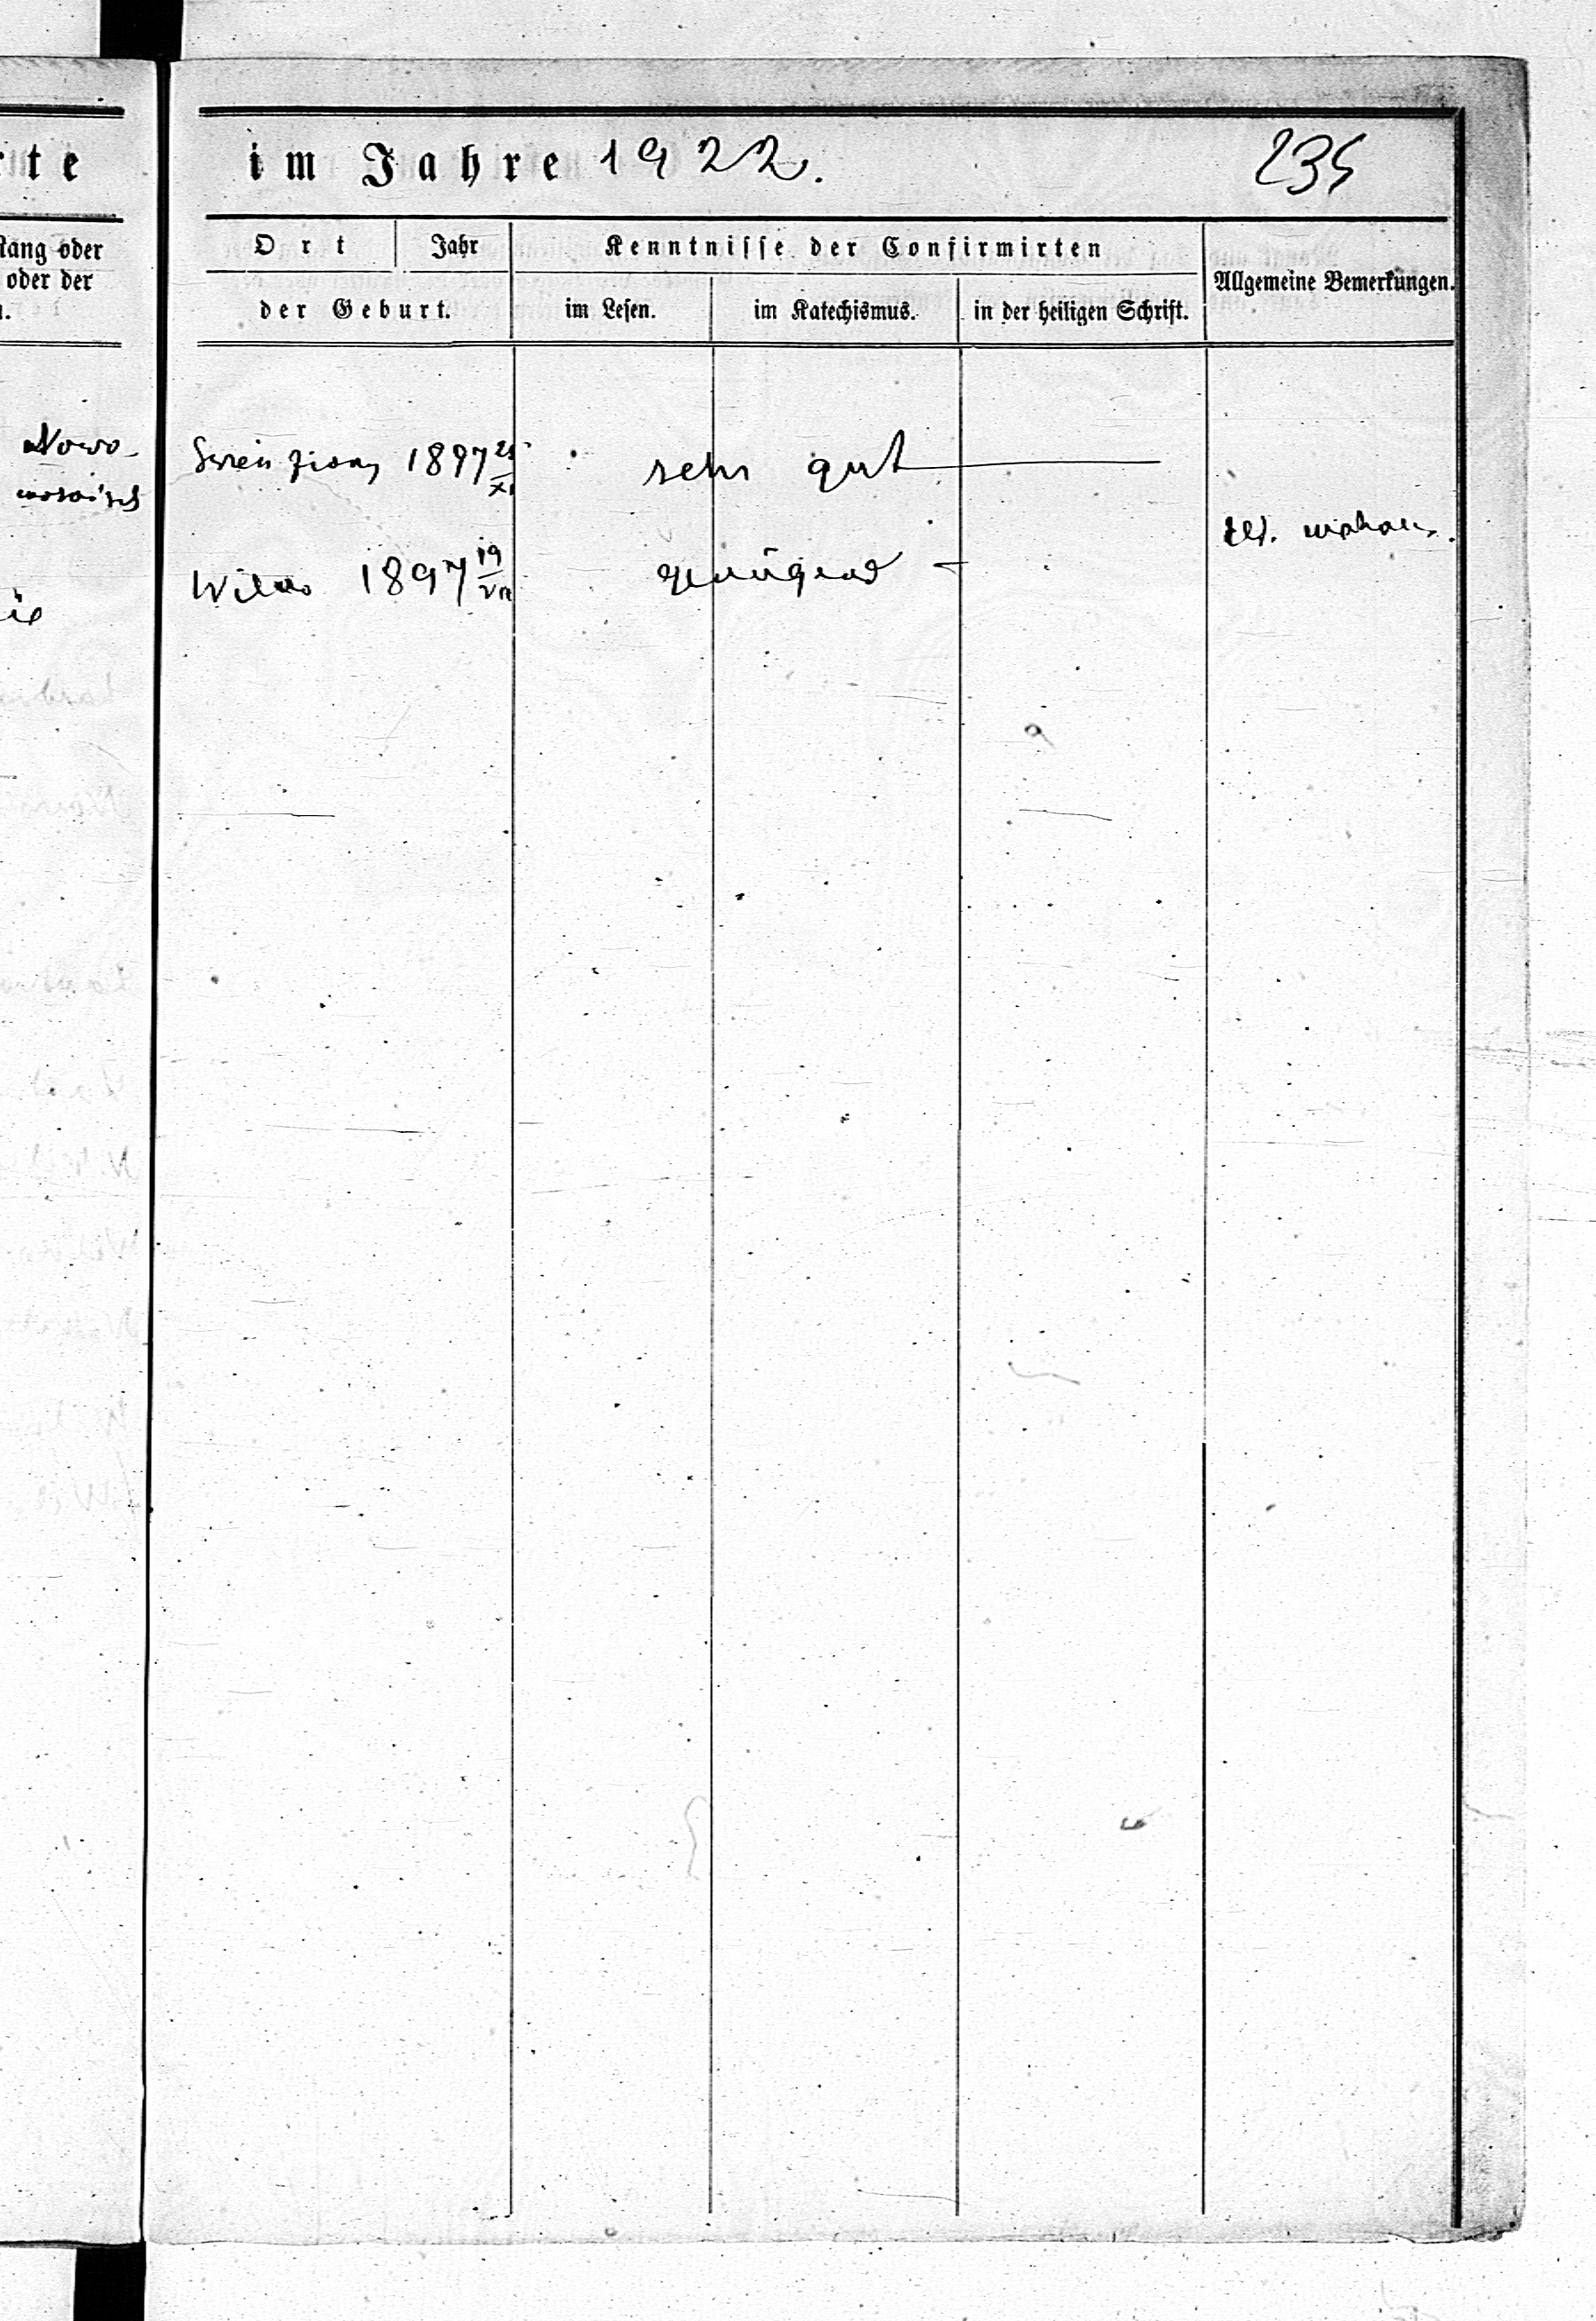 rte im Jahre 1922. 235
Rang oder
oder der
Ort Jahr
der Geburt.
Kenntnisse der Confirmirten
im Lesen. im Katechismus. in der heiligen Schrift.
Allgemeine Bemerkungen.
Nowo-
mosaisch
1897 XI sehr gut
Wilno 1897 19/VII genügend –